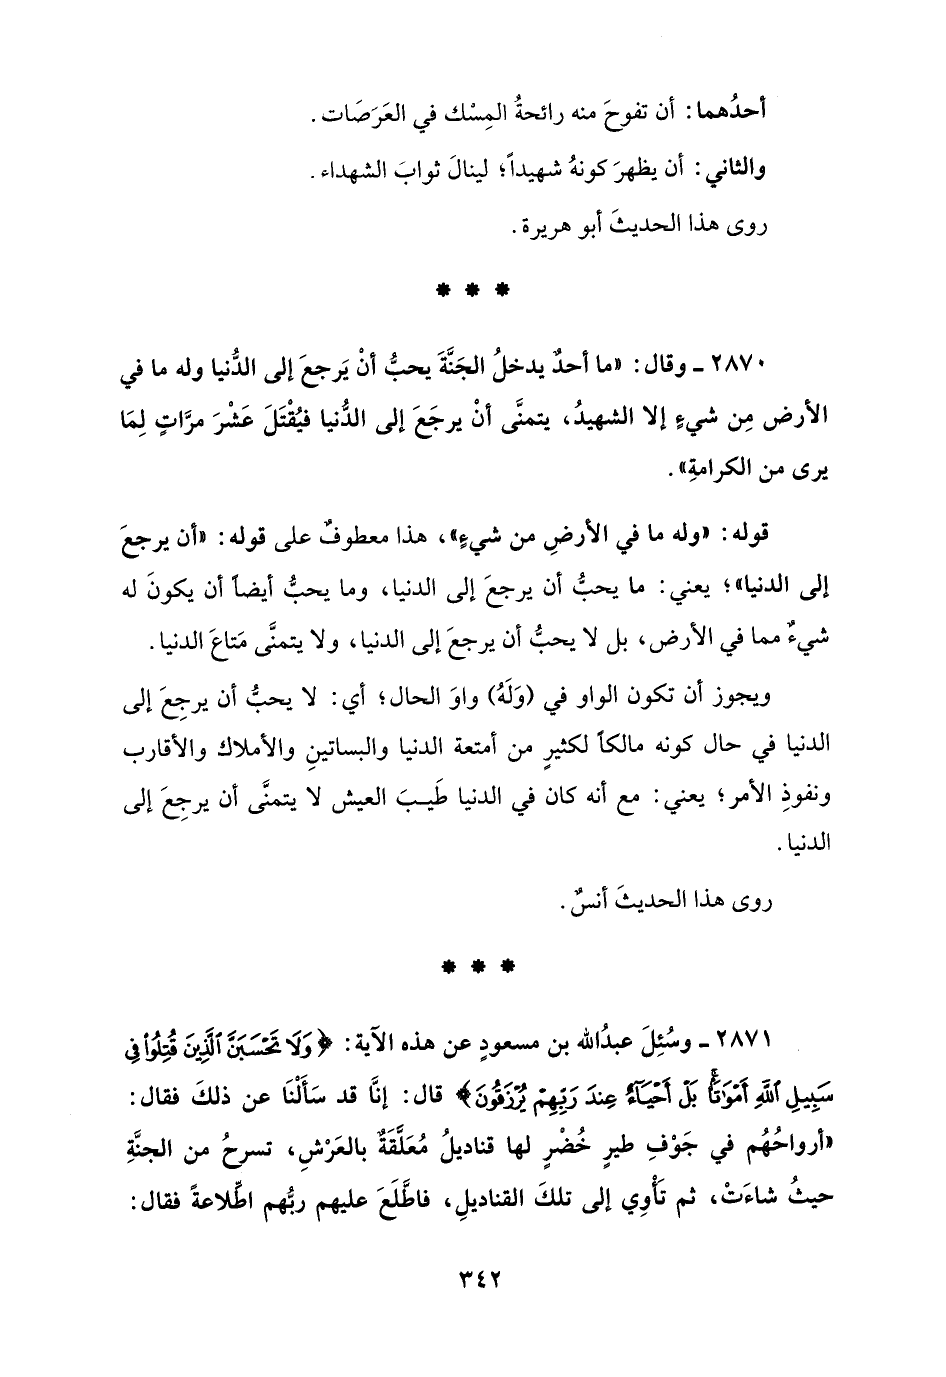 أحدُهما: أن تفوحَ منه رائحةُ المِسْك في العَرَصَات.
والثاني: أن يظهرَ كونهُ شهيداً؛ لينالَ ثوابَ الشهداء.
روى هذا الحديثَ أبو هريرة.
* * *
٢٨٧٠ ـ وقال: «ما أحدٌ يدخلُ الجَنَّةَ يحبُّ أنْ يَرجعَ إلى الدُّنيا وله ما في
الأرض مِن شيءٍ إلا الشهيدُ، يتمنَّى أنْ يرجَعَ إلى الدُّنيا فيُقْتَلَ عَشْرَ مرَّاتٍ لِمَا
يرى من الكرامةِ».
قوله: «وله ما في الأرضِ من شيءٍ»، هذا معطوفٌ على قوله: «أن يرجعَ
إلى الدنيا»؛ يعني: ما يحبُّ أن يرجعَ إلى الدنيا، وما يحبُّ أيضاً أن يكونَ له
شيءٌ مما في الأرض، بل لا يحبُّ أن يرجعَ إلى الدنيا، ولا يتمنَّى مَتاعَ الدنيا.
ويجوز أن تكون الواو في (وَلَهُ) واوَ الحال؛ أي: لا يحبُّ أن يرجِعَ إلى
الدنيا في حال كونه مالكاً لكثيرٍ من أمتعة الدنيا والبساتينِ والأملاك والأقارب
ونفوذِ الأمر؛ يعني: مع أنه كان في الدنيا طَيبَ العيش لا يتمنَّى أن يرجِعَ إلى
الدنيا.
روى هذا الحديثَ أنسٌ.
* * *
٢٨٧١ ـ وسُئِلَ عبدُالله بن مسعودٍ عن هذه الآية: ﴿وَلَا تَحْسَبَنَّ ٱلَّذِينَ قُتِلُوا۟ فِى
سَبِيلِ ٱللَّهِ أَمْوَٰتًۢا بَلْ أَحْيَآءٌ عِندَ رَبِّهِمْ يُرْزَقُونَ﴾ قال: إنَّا قد سَأَلْنَا عن ذلكَ فقال:
«أرواحُهُم في جَوْفِ طيرٍ خُضْرٍ لها قناديلُ مُعَلَّقَةٌ بالعَرْشِ، تسرحُ من الجنَّةِ
حيثُ شاءَتْ، ثم تَأْوِي إلى تلكَ القناديلِ، فاطَّلَعَ عليهم ربُّهم اطِّلاعةً فقال:
٣٤٢